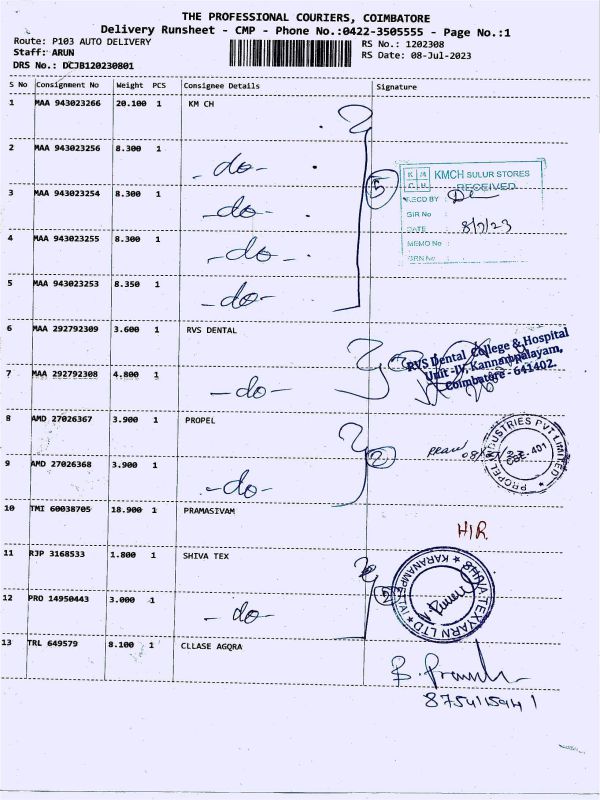 THE PROFESSIONAL COURIERS, COIMBATORE
Delivery Runsheet - CMP - Phone No.:0422-3505555 - Page No.:1
Route: P103 AUTO DELIVERY
RS No.: 1202308
Staff: ARUN
RS Date: 08-Jul-2023
DRS No.: DCJB120230801
S No Consignment No Weight PCS Consignee Details Signature
1 MAA 943023266 20.100 1 KM CH
2 MAA 943023256 8.300 1 - do -
3 MAA 943023254 8.300 1 - do -
4 MAA 943023255 8.300 1 - do -
5 MAA 943023253 8.350 1 - do -
5
KMCH SULUR STORES
RECEIVED
RECD BY :
GIR No :
DATE : 8/7/23
MEMO No :
GRN No :
6 MAA 292792309 3.600 1 RVS DENTAL
7 MAA 292792308 4.800 1 - do -
RVS Dental College & Hospital
Unit -IV, Kannampalayam,
Coimbatore - 641402.
8 AMD 27026367 3.900 1 PROPEL
9 AMD 27026368 3.900 1 - do -
2
PROPEL INDUSTRIES PVT LIMITED
CBE-401
10 TMI 60038705 18.900 1 PRAMASIVAM
H/R
11 RJP 3168533 1.800 1 SHIVA TEX
12 PRO 14950443 3.000 1 - do
2
SHIVA TEXYARN LTD
13 TRL 649579 8.100 1 CLLASE AGQRA